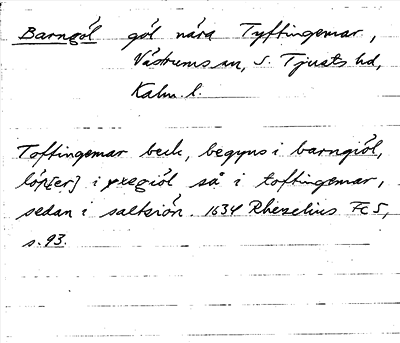 Barngöl göl nära Tyftingemar,
Västrums sn, S. Tjusts hd,
Kalm. l.
Toftingemar beck, begyns i barngiöl,
löp[er] i yxegiöl så i toftingemar,
sedan i saltsiön. 1634 Rhezelius Fc 5,
s. 93.